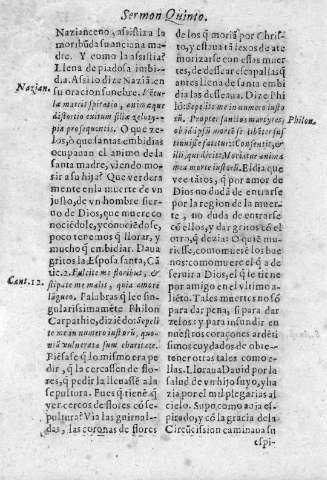 Sermon Quinto.
Nazianceno, assistiza la
moribũda su anciana ma
dre. Y como la assistia?
Llena de piadosa imbi-
dia. Assi lo dize Naziã.en
su oracion funebre. Vetu
la matris spiratio, animæque
distortio exitum filiæ zeloty-
pia prosequentis. O que ze-
los, ò que santas embidias
ocupauan el animo de la
santa madre, viendo mo-
rir a su hija? Que verdera
mente en la muerte de vn
justo, de vn hombre sier-
uo de Dios, que muere co
nociẽdole, y conociẽdose,
poco tenemos q̃ llorar, y
mucho q̃ embidiar. Daua
gritos la Esposa santa, Cã
tic.2. Fulcite me floribus, &
stipate me malis, quia amore
lãgueo. Palabras q̃ lee sin-
gularissimamẽte Philon
Carpathio, diziẽdo: Sepeli
te me in numero iustorũ, quo-
niã vulnerata sum charitate.
Piẽsase q̃ lo mismo era pe
dir, q̃ la cercassen de flo-
res, q̃ pedir la lleuassẽ a la
sepultura. Pues q̃ tiene q̃
ver cercos de flores cõ se-
pultura? Via las guirnal-
das, las coronas de flores
Nazian.
Cant. 12.
de los q̃ moriã por Chris-
to, y estaua tã lexos de ate
morizarse con essas muer
tes, de dessear escapallas q̃
antes llena de santa embi
dia las desseaua. Dize Phi
lõ: Sepelite me in numero iusto
rũ. Propter sanctos martyres,
ob id ipsũ mortẽ se libẽter sus
tinuisse fatẽtur: Consentit, &
illi, qui dicit: Moriatur anima
mea morte iustorũ. El dia que
vee tãtos, q̃ por amor de
Dios no dudã de entrarse
por la region de la muer-
te, no duda de entrarse
cõ ellos, y dar gritos cõ el
otro, q̃ dezia: O quiẽ mu-
riesse, como mueré los bue
nos: como muere el q̃ de
seruir a Dios, el q̃ le tiene
por amigo en el vltimo a-
liẽto. Tales muertes no sõ
para dar pena, si para dar
zelos: y para infundir en
nuestros coraçones ardẽti
simos cuydados de obte-
tener otras tales como e-
llas. Lloraua Dauid por la
salud de vn hijo suyo, y ha
zia por el mil plegarias al
cielo. Supo como auia es-
pirado, y cõ la gracia de la
Circũcission caminaua su
espi-
Philon.